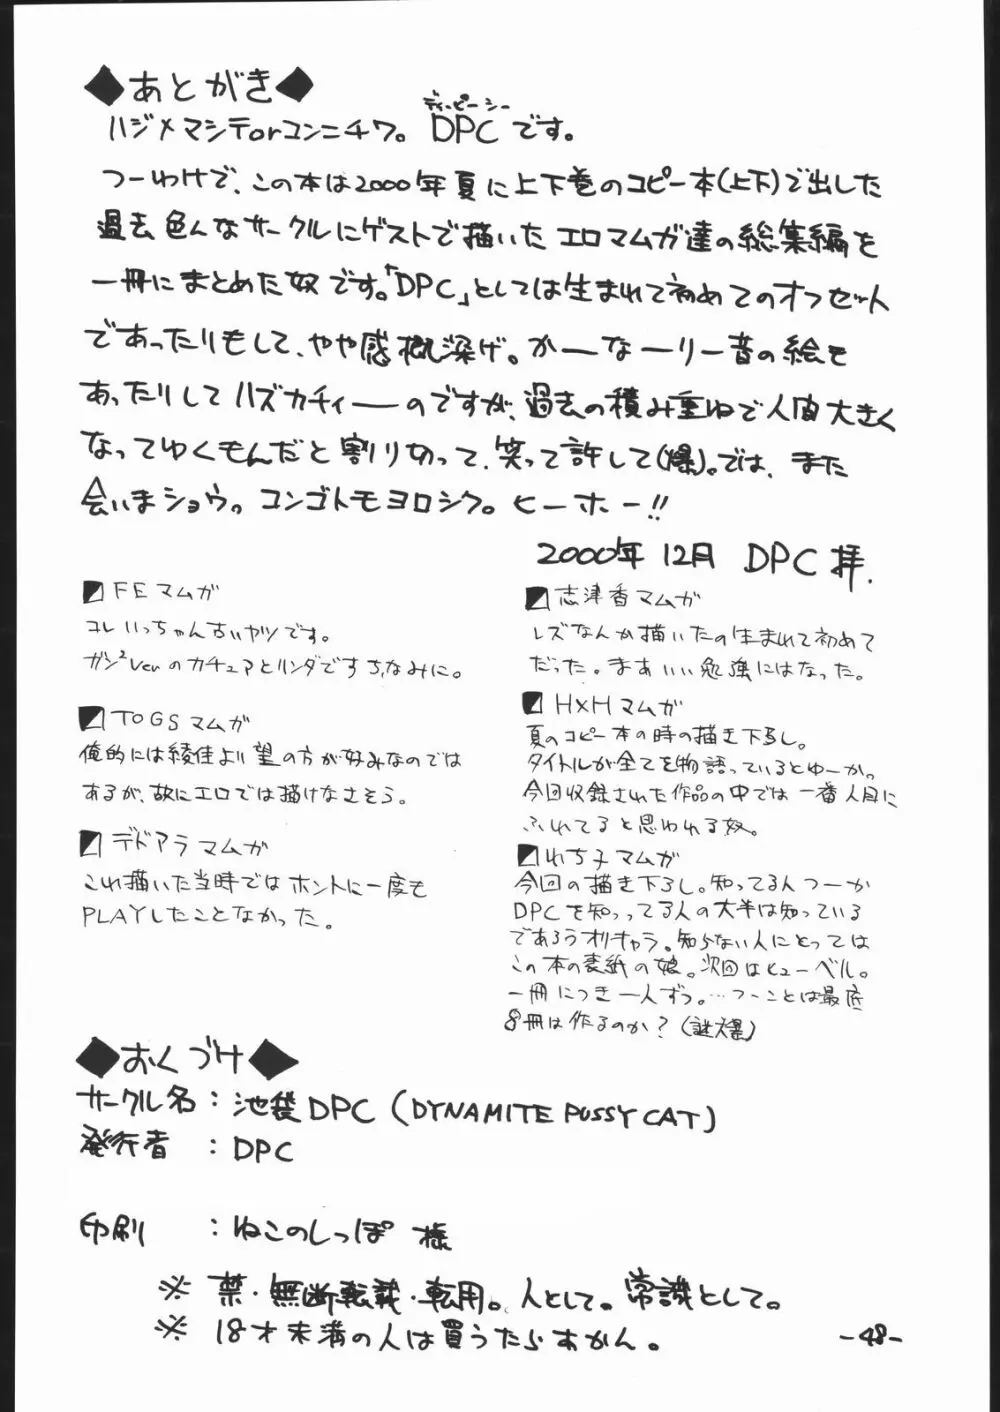 ◆あとがき◆
ハジメマシテorコンニチワ。DPCです。
ディーピーシー
つーわけで、この本は2000年夏に上下巻のコピー本(上下)で出した
過去色んなサークルにゲストで描いたエロマムガ達の総集編を
一冊にまとめた奴です。「DPC」としては生まれて初めてのオフセット
であったりもして、やや感慨深げ。かーなーりー昔の絵も
あったりしてハズカチィーのですが、過去の積み重ねで人間大きく
なってゆくもんだと割り切って、笑って許して(爆)。では、また
会いまショウ。コンゴトモヨロシク。ヒーホー!!
2000年12月 DPC 拝.
FEマムガ
コレいっちゃん古いヤツです。
ガン²Verのカチュアとリンダですちなみに。
TOGSマムガ
俺的には綾佳より望の方が好みなのでは
あるが、故にエロでは描けなさそう。
デドアラマムガ
これ描いた当時ではホントに一度も
PLAYしたことなかった。
志津香マムガ
レズなんか描いたの生まれて初めて
だった。まあいい勉強にはなった。
H×Hマムガ
夏のコピー本の時の描き下ろし。
タイトルが全てを物語っているとゆーか。
今回収録された作品の中では一番人目に
ふれてると思われる奴。
れち子マムガ
今回の描き下ろし。知ってる人つーか
DPCを知ってる人の大半は知っている
であろうオリキャラ。知らない人にとっては
この本の表紙の娘。次回はヒューベル。
一冊につき一人ずつ。…つーことは最底
8冊は作るのか?(謎爆)
◆おくづけ◆
サークル名:池袋DPC(DYNAMITE PUSSY CAT)
発行者:DPC
印刷:ねこのしっぽ 様
※ 禁・無断転載・転用。人として。常識として。
※ 18才未満の人は買うたらあかん。
-48-